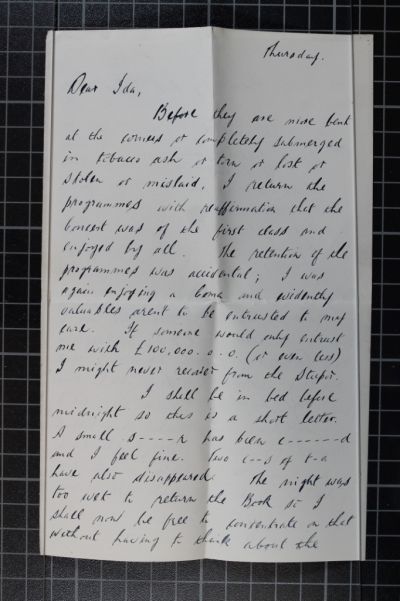 Thursday.
Dear Ida,
Before they are more bent
at the corners or completely submerged
in tobacco ash or torn or lost or
stolen or mislaid, I return the
programmes with reaffirmation that the
Concert was of the first class and
enjoyed by all. The retention of the
programmes was accidental; I was
again enjoying a coma and evidently
valuables arent to be entrusted to my
care. If someone would only entrust
me with £100,000.0.0. (or even less)
I might never recover from the stupor.
I shall be in bed before
midnight so this is a short letter.
A small s----r has been c------d
and I feel fine. Two c--s of t-a
have also disappeared. The night was
too wet to return the Book so I
shall now be free to concentrate on that
without having to think about the